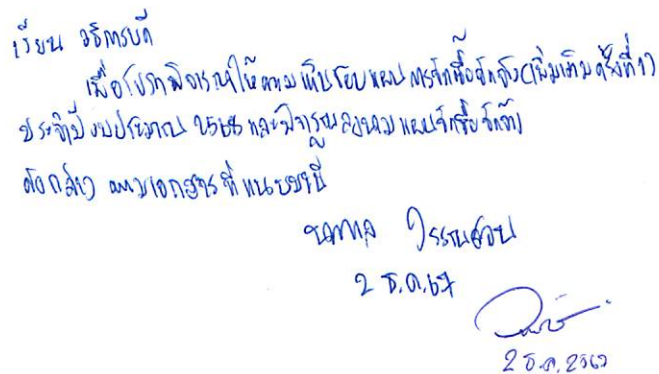 เรียน อธิการบดี
เพื่อโปรดพิจารณาให้ความเห็นชอบแผนการจัดซื้อจัดจ้าง(เพิ่มเติมครั้งที่ 1)
ประจำปีงบประมาณ 2568 และพิจารณาลงนามแผนจัดซื้อจัดจ้าง
ดังกล่าว ตามเอกสารที่แนบมานี้
2 ธ.ค.67
2 ธ.ค. 2567